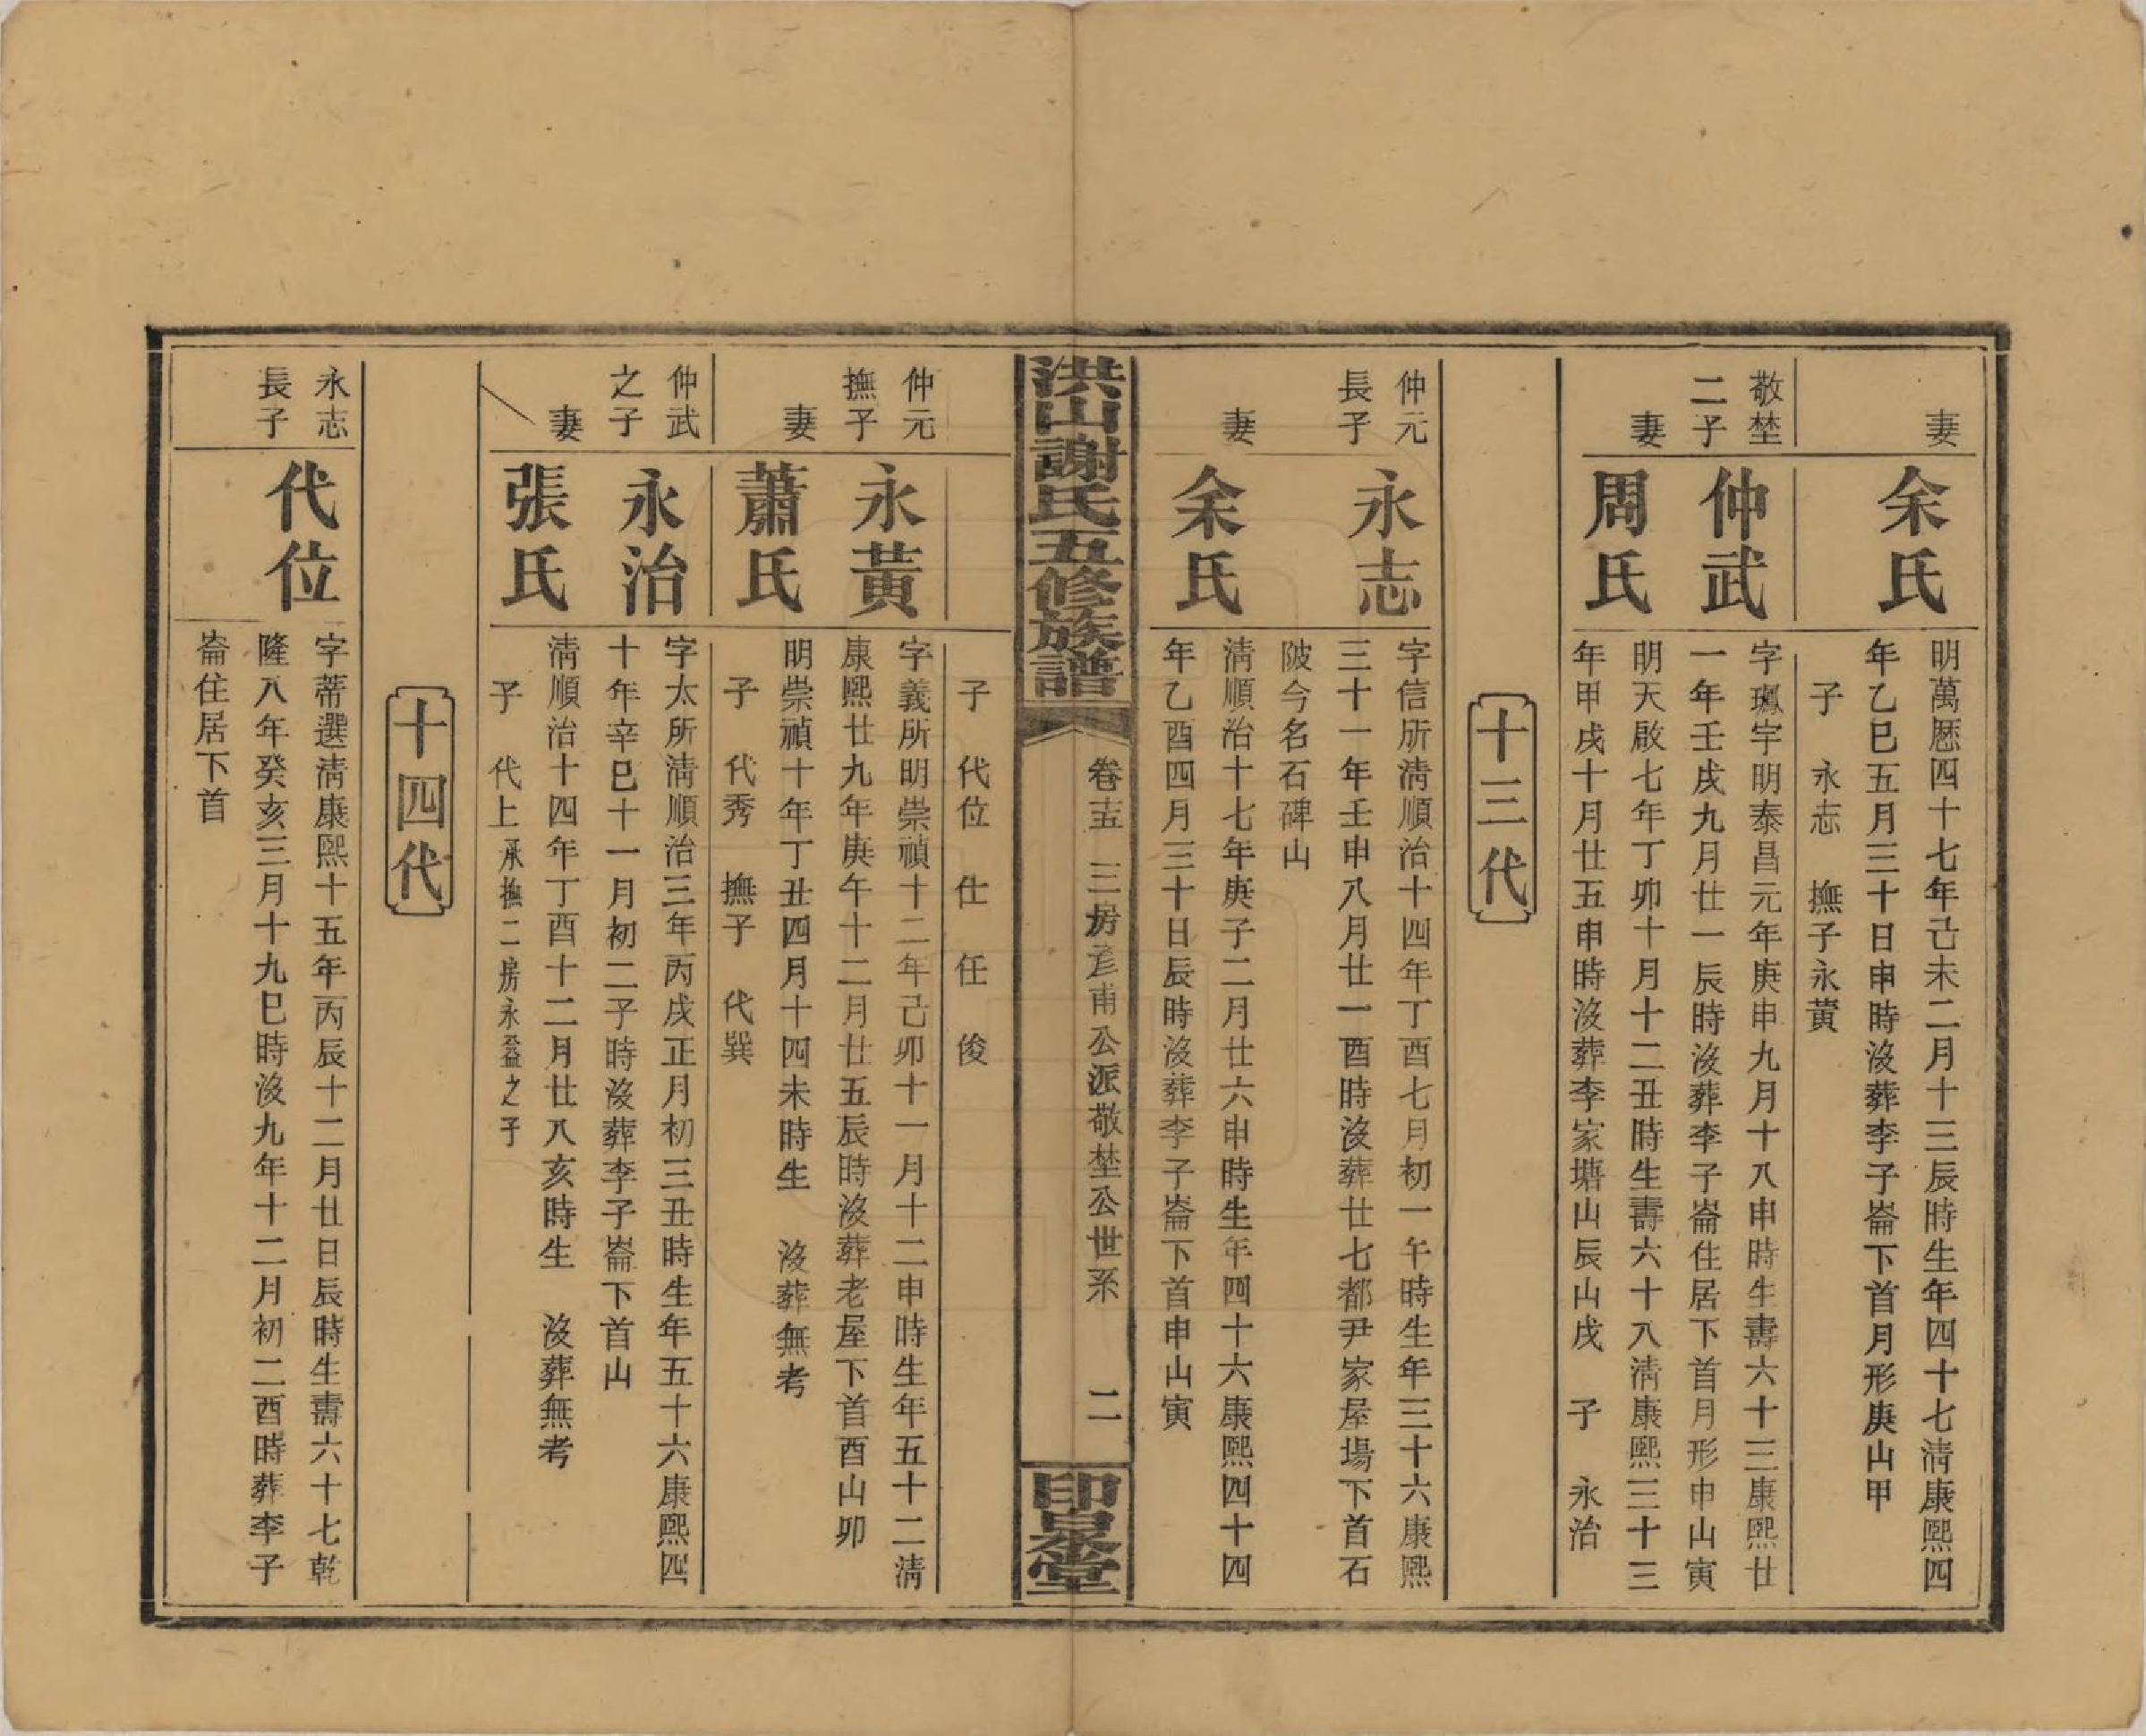 妻
余氏
明萬厯四十七年己未二月十三辰時生年四十七清康熙四
年乙巳五月三十日申時沒葬李子崙下首月形庚山甲
子 永志 撫子永黃
敬埜
二子
仲武
字 宇明泰昌元年庚申九月十八申時生壽六十三康熙廿
一年壬戌九月廿一辰時沒葬李子崙住居下首月形申山寅
妻
周氏
明天啟七年丁卯十月十二丑時生壽六十八清康熙三十三
年甲戌十月廿五申時沒葬李家塘山辰山戌 子 永治
十三代
仲元
長子
永志
字信所清順治十四年丁酉七月初一午時生年三十六康熙
三十一年壬申八月廿一酉時沒葬廿七都尹家屋場下首石
陂今名石碑山
妻
余氏
清順治十七年庚子二月廿六申時生年四十六康熙四十四
年乙酉四月三十日辰時沒葬李子崙下首申山寅
洪山謝氏五修族譜
卷十五 三房彥甫公派敬埜公世系 二
印泉堂
子 代位 仕 任 俊
仲元
撫子
永黃
字義所明崇禎十二年己卯十一月十二申時生年五十二清
康熙廿九年庚午十二月廿五辰時沒葬老屋下首酉山卯
妻
蕭氏
明崇禎十年丁丑四月十四未時生 沒葬無考
子 代秀 撫子 代巽
仲武
之子
永治
字太所清順治三年丙戌正月初三丑時生年五十六康熙四
十年辛巳十一月初二子時沒葬李子崙下首山
妻
張氏
清順治十四年丁酉十二月廿八亥時生 沒葬無考
子 代上承撫二房永益之子
十四代
永志
長子
代位
字蒂選清康熙十五年丙辰十二月廿日辰時生壽六十七乾
隆八年癸亥三月十九巳時沒九年十二月初二酉時葬李子
崙住居下首